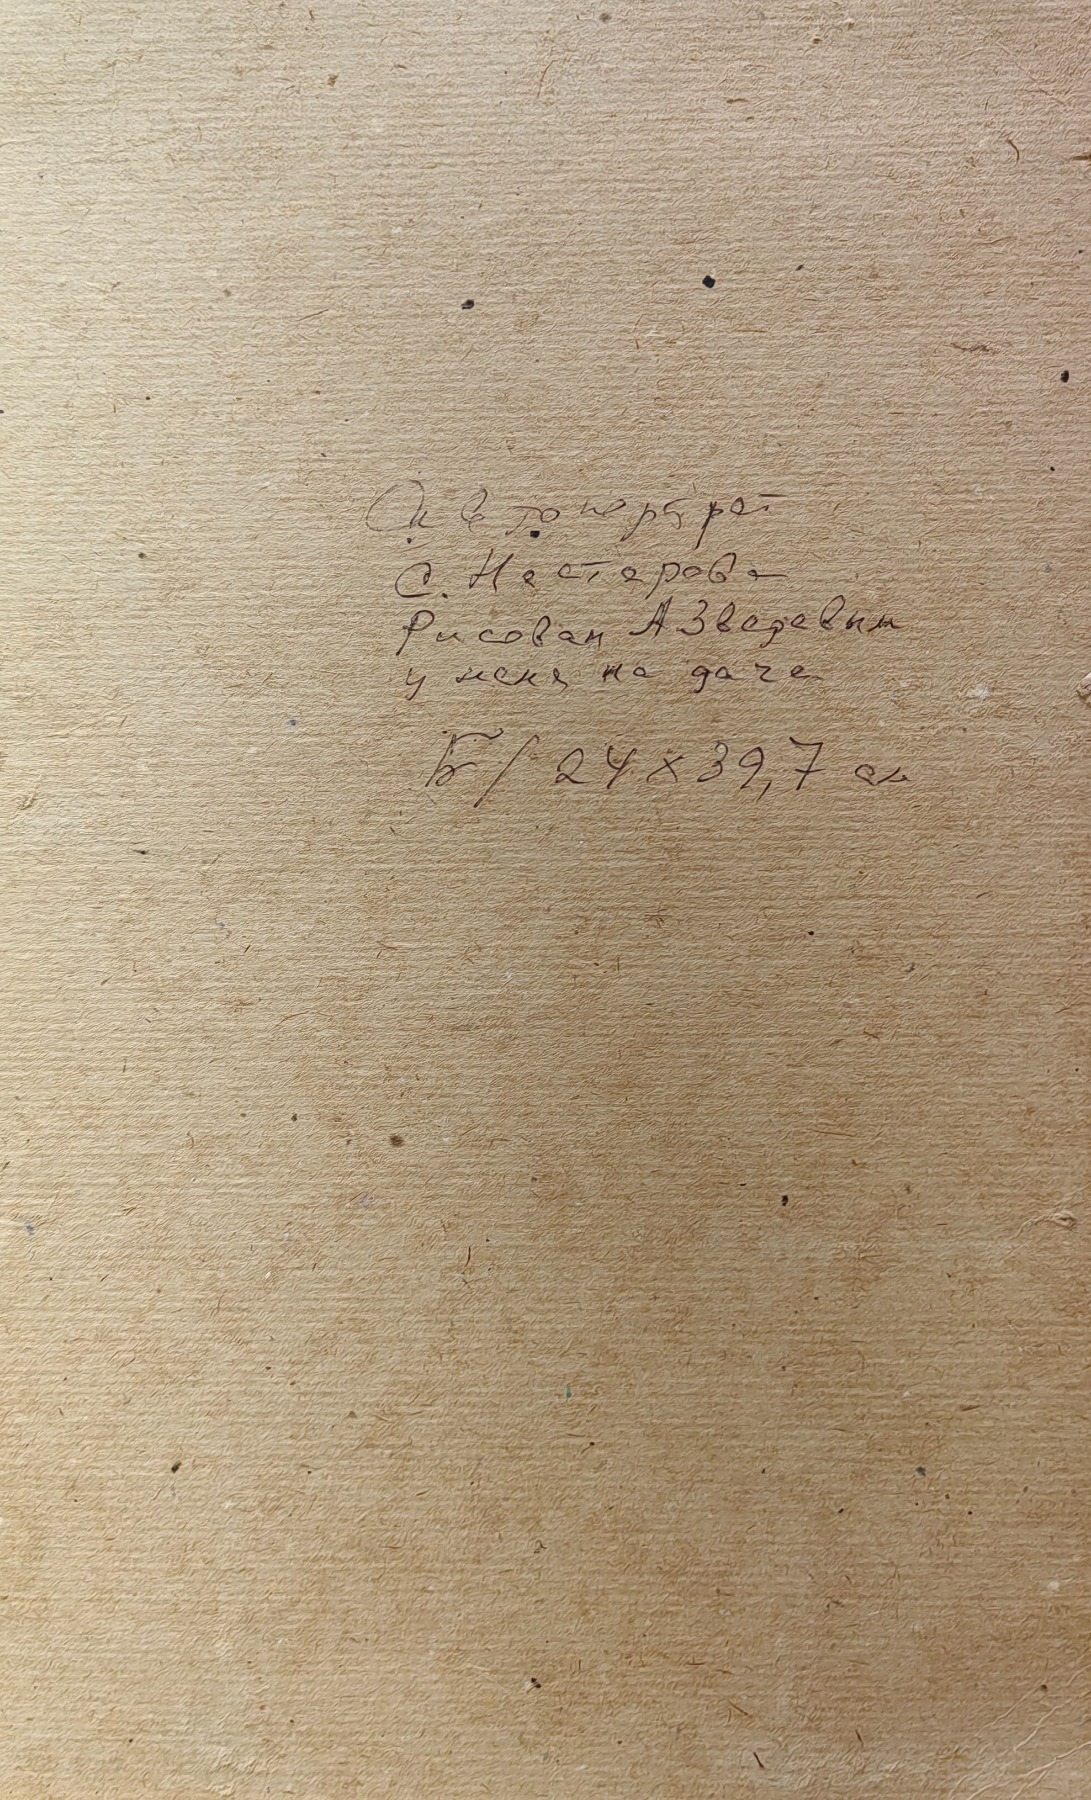 Автопортрет
С. Нестерова
Рисован А Зверевым
у меня на даче
Б/ 24 x 39,7 см